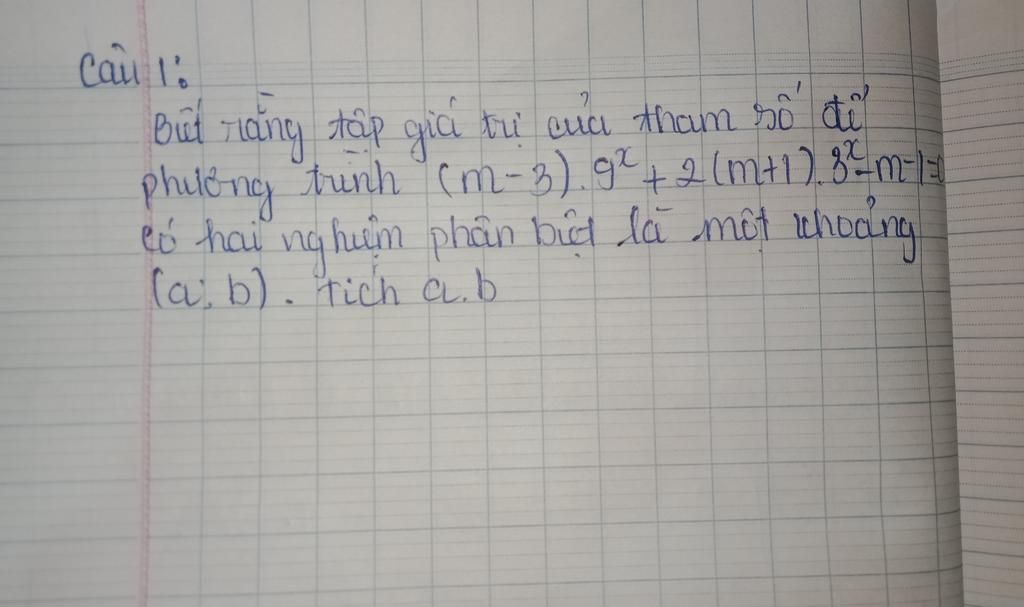 Câu 1:
Biết rằng tập giá trị của tham số để
phương trình (m-3).9^x + 2(m+1).3^x - m - 1 = 0
có hai nghiệm phân biệt là một khoảng
(a; b). tích a.b